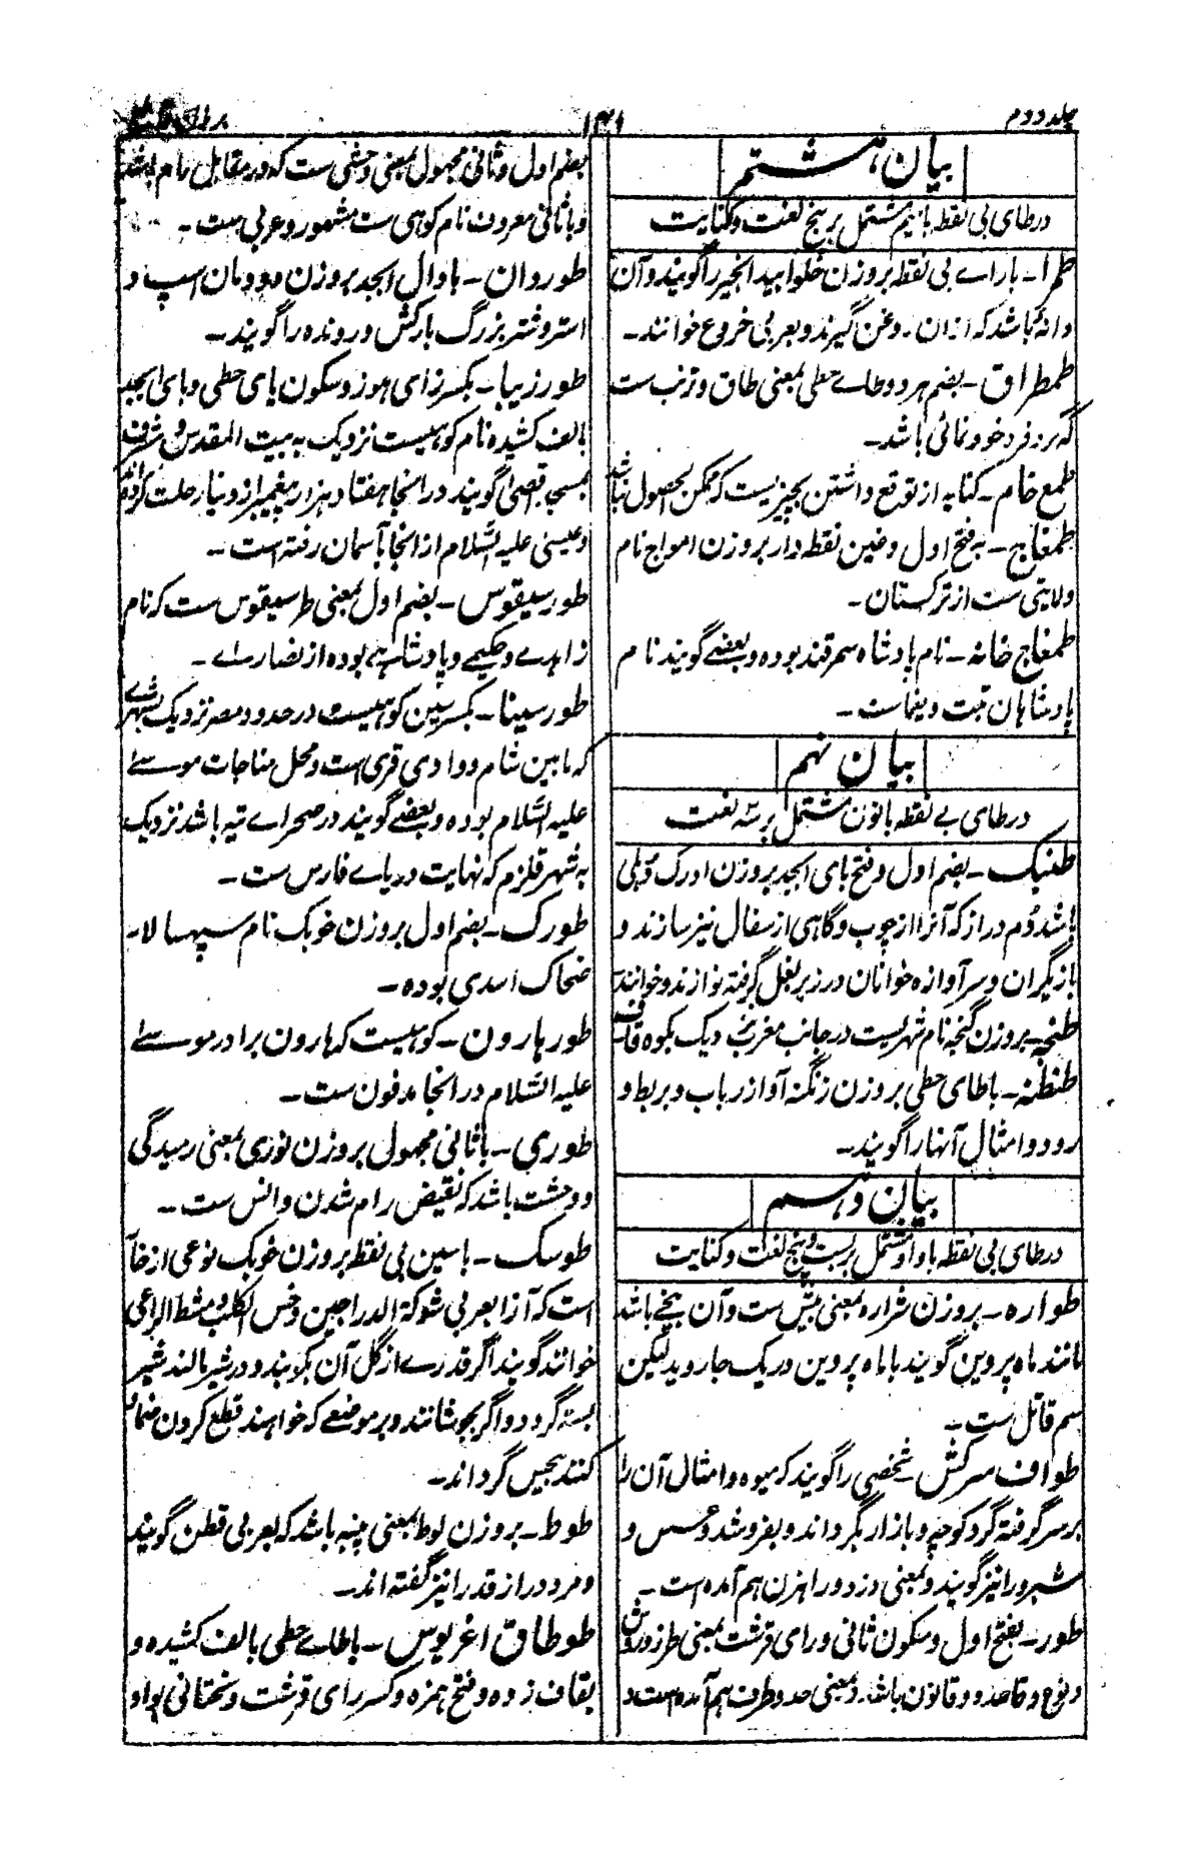 جلد دوم
۱۴۱
برهان قاطع
بیان هشتم
در طای بی نقطه با میم مشتمل بر پنج لغت و کنایت
طمرا ـ با رای بی نقطه بروزن حلوا بیدانجیر را گویند و آن
دانهٔ باشد که ازان روغن گیرند و بعربی خروع خوانند ـ
طمطراق ـ بضم هر دو طاے حطی بمعنی طاق و ترنب ست
که کروفر و خودنمائی باشد ـ
طمع خام ـ کنایه از توقع داشتن بچیزیست که ممکن الحصول نباشد
طمغاج ـ به فتح اول و غین نقطه دار بروزن امواج نام
ولایتی ست از ترکستان ـ
طمغاج خانه ـ نام پادشاه سمرقند بوده و بعضے گویند نام
پادشاهان تبت و یغماست ـ
بیان نهم
در طای بے نقطه با نون مشتمل بر سه لغت
طنبک ـ بضم اول و فتح بای ابجد بروزن اردک دهلی
باشد دُم دراز که آنرا از چوب و گاهی از سفال نیز سازند و
بازیگران و سرآوازه خوانان در زیر بغل گرفته نوازند و خوانند
طنجه ـ بروزن گنجه نام شهریست در جانب مغرب نزدیک بکوه قاف
طنطنه ـ با طای حطی بروزن زنگنه آواز رباب و بربط و
رود و امثال آنها را گویند ـ
بیان دهم
در طای بی نقطه با واو مشتمل بر بیست و پنج لغت و کنایت
طواره ـ بروزن شراره بمعنی بیش ست و آن بیخے باشد
مانند ماه پروین گویند با ماه پروین در یک جا روید لیکن
سم قاتل ست ـ
طواف سرکش ـ شخصی را گویند که میوه و امثال آن را
بر سر گرفته گرد کوچه و بازار بگرداند و بفروشد و عسس و
شبرو را نیز گویند و بمعنی دزد و راهزن هم آمده است ـ
طور ـ بفتح اول و سکون ثانی و رای قرشت بمعنی طرز و روش
و نوع و قاعده و قانون باشد و بمعنی حد و طرف هم آمده است و
بضم اول و ثانی مجهول بمعنی وحشی ست که در مقابل رام باشد
و با ثانی معروف نام کوهی ست مشهور و عربی ست ـ
طوردان ـ با دال ابجد بروزن دودمان اسپ و
استر و شتر بزرگ بارکش و رونده را گویند ـ
طور زیبا ـ بکسر زای هوز و سکون یای حطی و بای ابجد
بالف کشیده نام کوهیست نزدیک به بیت المقدس و مشرف
بمسجد اقصی گویند در انجا هفتاد هزار پیغمبر از دنیا رحلت کرده اند
و عیسی علیه السّلام از انجا بآسمان رفته است ـ
طور سیقوس ـ بضم اول بمعنی طرسیقوس ست که نام
زاهدے و حکیمے و پادشاهے بوده از نصارے ـ
طور سینا ـ بکسر سین کوهیست در حدود مصر نزدیک بشهرے
که مابین شام و وادی قری است و محل مناجات موسے
علیه السّلام بوده و بعضے گویند در صحراے تیه باشد نزدیک
به شهر قلزم که نهایت دریاے فارس ست ـ
طورک ـ بضم اول بروزن خوبک نام سپهسالار
ضحاک اسدی بوده ـ
طور هارون ـ کوهیست که هارون برادر موسے
علیه السّلام در انجا مدفون ست ـ
طوری ـ با ثانی مجهول بروزن نوری بمعنی رمیدگی
و وحشت باشد که نقیض رام شدن و انس ست ـ
طوسک ـ با سین بی نقطه بروزن خوبک نوعی از خار
است که آنرا بعربی شوکة الدراجین و خس الکلب و مشط الراعی
خوانند گویند اگر قدرے از گل آن بکوبند و در شیر مالند شیر
بسته گردد و اگر بجوشانند و بر موضعے که خواهند قطع کردن ضماد
کنند بیحس گرداند ـ
طوط ـ بروزن لوط بمعنی پنبه باشد که بعربی قطن گویند
و مرد دراز قد را نیز گفته اند ـ
طوطاق اغریوس ـ با طاے حطی بالف کشیده و
بقاف زده و فتح همزه و کسر رای قرشت و تحتانی بواو